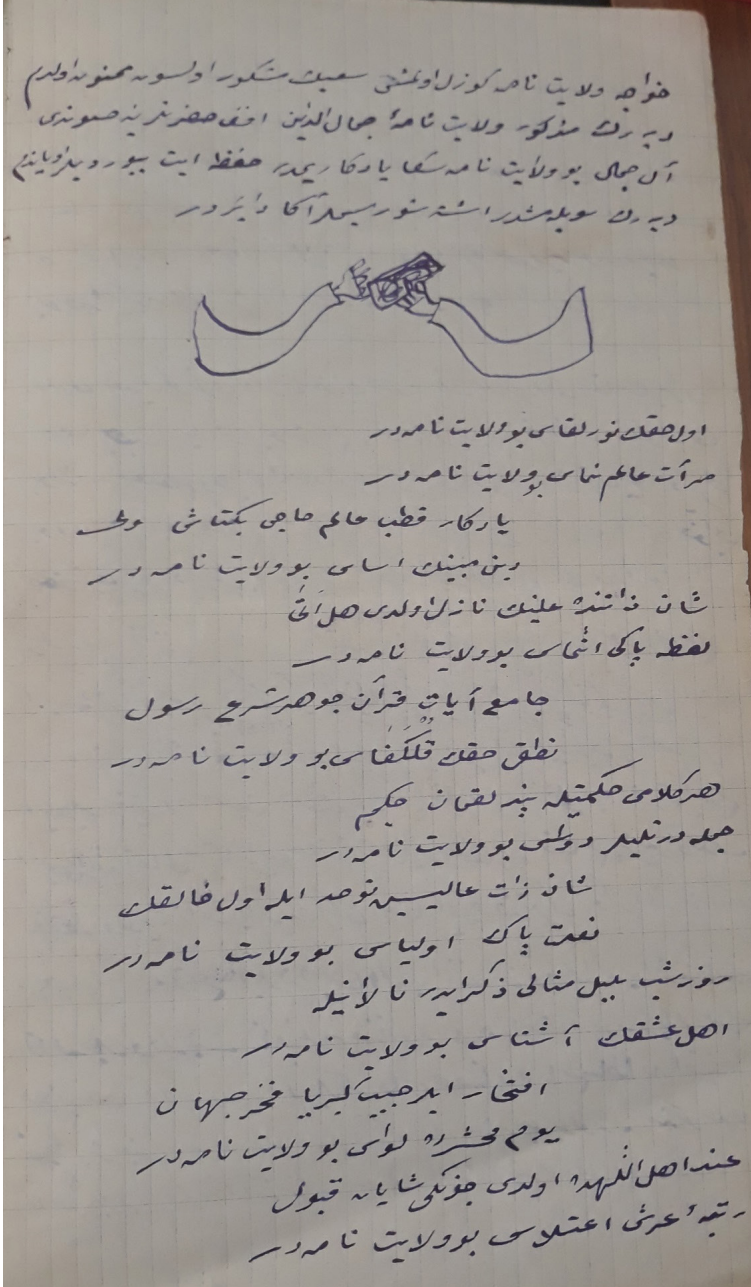 خواجه ولايت نامه كوزل اولمش سعيك مشكور اولسون ممنون اولدم
ديه رك مذكور ولايت نامهٔ جمال الدين افندى حضرتلرينه صوندى
آل جمال بو ولايت نامه سكا يادكاريمدر حفظ ايت بيورديلر
ديه رك سويلمشدر اشته شو رسيملر آكا دائردر
اول حقك نور لقاسى بو ولايت نامه در
مرآت عالم نماسى بو ولايت نامه در
يادكار قطب عالم حاجى بكتاش ولى
دين مبينك اساسى بو ولايت نامه در
شان ذاتنده علينك نازل اولدى هل اتى
لفظه پاكى انماسى بو ولايت نامه در
جامع آيات قرآن جوهر شرع رسول
نطق حقك قلكفاسى بو ولايت نامه در
هر كلامى حكمتيله پند لقمان حكيم
جمله دردليلر دواسى بو ولايت نامه در
شان ذات عاليسين توحد ايله اول خالقك
نعت پاك اولياسى بو ولايت نامه در
روز شب بلبل مثالى ذكر ايدر نالانيله
اهل عشقك آشناسى بو ولايت نامه در
افتخار ايلر حبيب كبريا فخر جهان
يوم محشرده لواسى بو ولايت نامه در
عند اهل اللهده اولدى چونكى شايان قبول
رتبهٔ عرش اعتلاسى بو ولايت نامه در